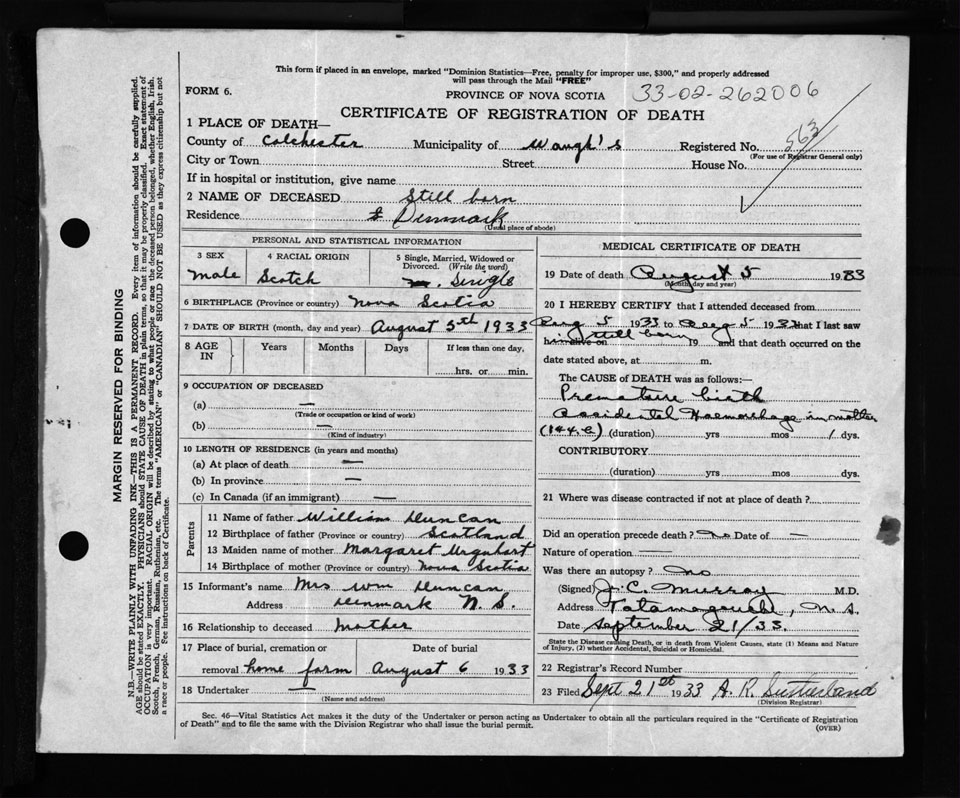 This form if placed in an envelope, marked "Dominion Statistics—Free, penalty for improper use, $300," and properly addressed
will pass through the Mail "FREE"
FORM 6.
PROVINCE OF NOVA SCOTIA
33-02-262006
CERTIFICATE OF REGISTRATION OF DEATH
563
1 PLACE OF DEATH—
County of Colchester Municipality of Waugh's Registered No.
(For use of Registrar General only)
City or Town Street House No.
If in hospital or institution, give name
2 NAME OF DECEASED Still born
Residence Denmark
(Usual place of abode)
PERSONAL AND STATISTICAL INFORMATION
3 SEX 4 RACIAL ORIGIN 5 Single, Married, Widowed or
Divorced. (Write the word)
Male Scotch Single
6 BIRTHPLACE (Province or country) Nova Scotia
7 DATE OF BIRTH (month, day and year) August 5th 1933
8 AGE IN Years Months Days If less than one day,
hrs. or min.
9 OCCUPATION OF DECEASED
(a) —
(Trade or occupation or kind of work)
(b) —
(Kind of industry)
10 LENGTH OF RESIDENCE (in years and months)
(a) At place of death —
(b) In province —
(c) In Canada (if an immigrant) —
Parents
11 Name of father William Duncan
12 Birthplace of father (Province or country) Scotland
13 Maiden name of mother Margaret Urquhart
14 Birthplace of mother (Province or country) Nova Scotia
15 Informant's name Mrs Wm Duncan
Address Denmark N. S.
16 Relationship to deceased Mother
17 Place of burial, cremation or Date of burial
removal home farm August 6 1933
18 Undertaker —
(Name and address)
MEDICAL CERTIFICATE OF DEATH
19 Date of death August 5 1933
(Month, day and year)
20 I HEREBY CERTIFY that I attended deceased from
Aug 5 1933 to Aug 5 1933 that I last saw
h alive on still born 19 and that death occurred on the
date stated above, at m.
The CAUSE OF DEATH was as follows:—
Premature birth
Accidental Haemorrhage in mother
(144.c) (duration) yrs mos 1 dys.
CONTRIBUTORY
(duration) yrs mos dys.
21 Where was disease contracted if not at place of death?
Did an operation precede death? no Date of —
Nature of operation —
Was there an autopsy? no
(Signed) J. C. Murray M.D.
Address Tatamagouche, N.S.
Date September 21/33.
State the Disease causing Death, or in death from Violent Causes, state (1) Means and Nature
of Injury, (2) whether Accidental, Suicidal or Homicidal.
22 Registrar's Record Number
23 Filed Sept 21st 1933 A. R. Sutherland
(Division Registrar)
Sec. 46—Vital Statistics Act makes it the duty of the Undertaker or person acting as Undertaker to obtain all the particulars required in the "Certificate of Registration
of Death" and to file the same with the Division Registrar who shall issue the burial permit.
(OVER)
MARGIN RESERVED FOR BINDING
N.B.—WRITE PLAINLY WITH UNFADING INK—THIS IS A PERMANENT RECORD. Every item of information should be carefully supplied.
AGE should be stated EXACTLY. PHYSICIANS should STATE CAUSE OF DEATH in plain terms, so that it may be properly classified. Exact statement of
OCCUPATION is very important. RACIAL ORIGIN will be described by stating to what people or race the deceased person belonged, whether English, Irish,
Scotch, French, German, Russian, Ruthenian, etc. The terms "AMERICAN" or "CANADIAN" SHOULD NOT BE USED as they express citizenship but not
a race or people. See instructions on back of Certificate.